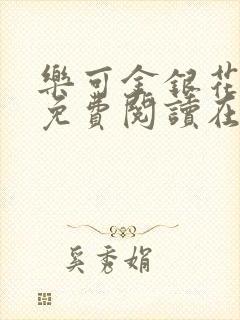 樂可金銀花
免費閱讀在
奚秀娟